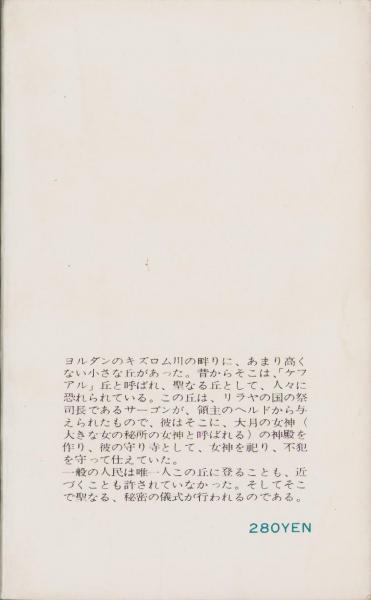 ヨルダンのキズロム川の畔りに、あまり高く
ない小さな丘があった。昔からそこは、「ケフ
アル」丘と呼ばれ、聖なる丘として、人々に
恐れられている。この丘は、リラヤの国の祭
司長であるサーゴンが、領主のヘルドから与
えられたもので、彼はそこに、大月の女神（
大きな女の秘所の女神と呼ばれる）の神殿を
作り、彼の守り寺として、女神を祀り、不犯
を守って仕えていた。
一般の人民は唯一人この丘に登ることも、近
づくことも許されていなかった。そしてそこ
で聖なる、秘密の儀式が行われるのである。
280YEN